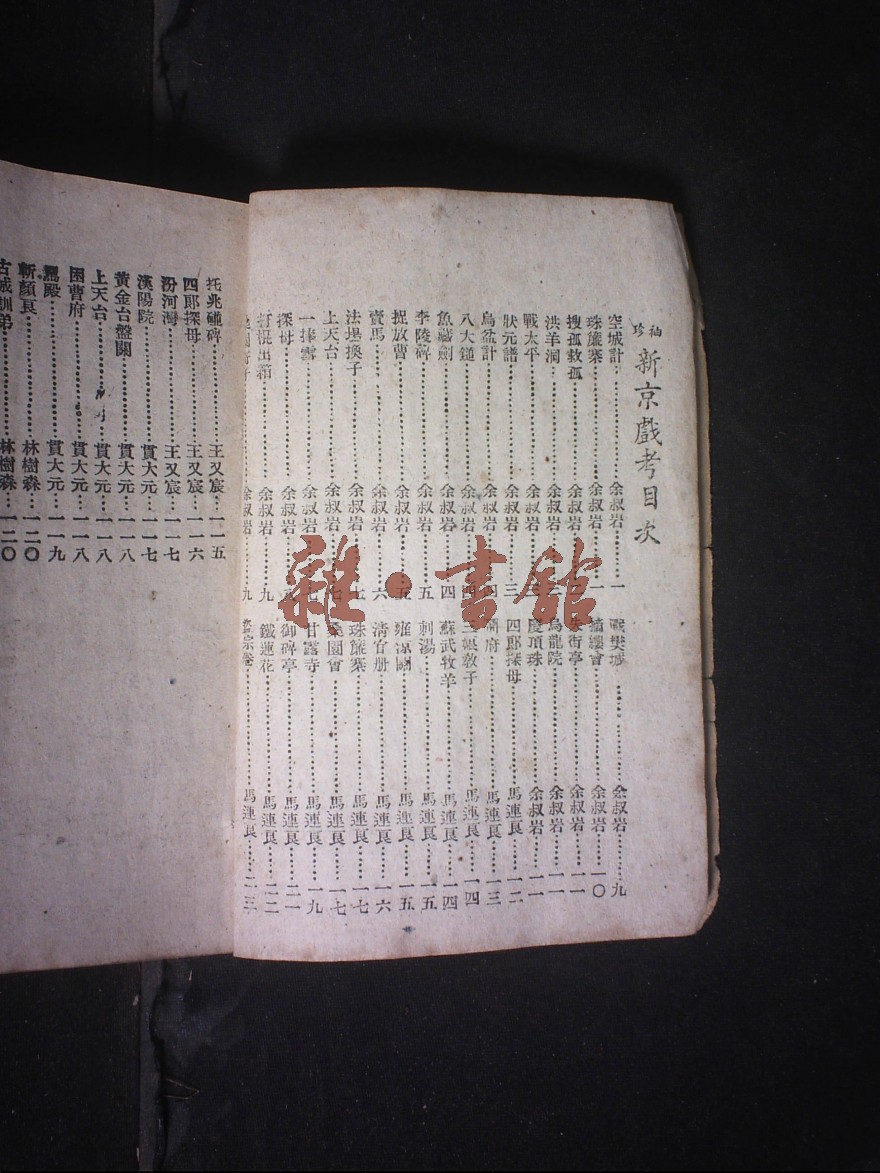 袖珍 新京戲考目次
空城計 余叔岩 一
珠簾寨 余叔岩 一
搜孤救孤 余叔岩
洪羊洞 余叔岩
戰太平 余叔岩
狀元譜 余叔岩 三
烏盆計 余叔岩 四
八大鎚 余叔岩 四
魚藏劍 余叔岩 四
李陵碑 余叔岩 五
捉放曹 余叔岩 五
賣馬 余叔岩 六
法場換子 余叔岩 七
上天台 余叔岩 七
一捧雪 余叔岩 七
探母 余叔岩 八
打棍出箱 余叔岩 九
余叔岩 九
戰樊城 余叔岩 九
摘纓會 余叔岩 一〇
余叔岩 一一
烏龍院 余叔岩 一一
慶頂珠 余叔岩 一一
四郎探母 馬連良 一二
馬連良 一三
三娘敎子 馬連良 一四
蘇武牧羊 馬連良 一四
刺湯 馬連良 一五
雍涼關 馬連良 一五
清官册 馬連良 一六
珠簾寨 馬連良 一七
桑園會 馬連良 一七
甘露寺 馬連良 一九
御碑亭 馬連良 二一
鐵蓮花 馬連良 二二
馬連良 二三
托兆碰碑 王又宸 一一五
四郎探母 王又宸 一一六
汾河灣 王又宸 一一七
漢陽院 貫大元 一一七
黃金台盤關 貫大元 一一八
上天台 貫大元 一一八
困曹府 貫大元 一一八
罵殿 貫大元 一一九
斬顏良 林樹森 一二〇
古城訓弟 林樹森 一二〇
雜·書館